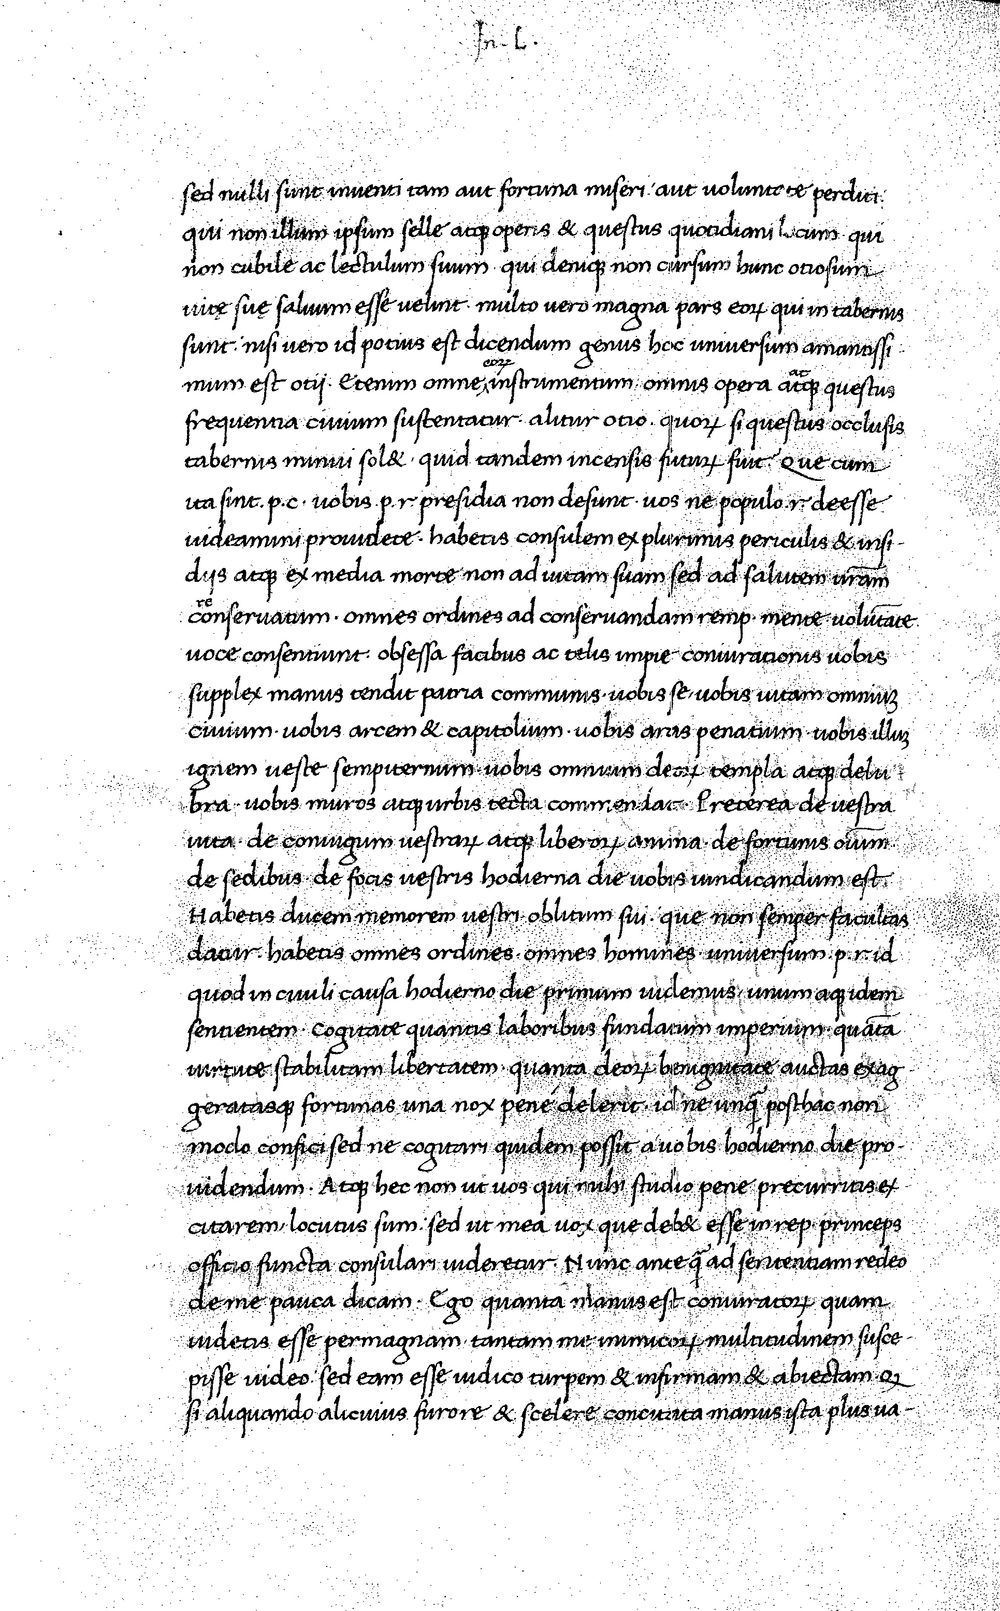 In · L ·
sed nulli sunt inventi tam aut fortuna miseri aut voluntate perditi
qui non illum ipsum selle atqꝫ operis & questus quotidiani locum qui
non cubile ac lectulum suum · qui deniqꝫ non cursum hunc otiosum
vitę suę saluum esse uelint · multo vero magna pars eoꝝ qui in tabernis
sunt · nisi vero id potius est dicendum genus hoc universum amantissi
mum est otij · Etenim omne eoꝝ instrumentum omnis opera ac atqꝫ questus
frequentia civium sustentatur · alitur otio · quoꝝ si questus occlusis
tabernis minui sol& · quid tandem incensis futuꝝ fuit · Que cum
ita sint · p · c · uobis · p · r · presidia non desunt · uos ne populo · r · deesse
uideamini prouidete · habetis consulem ex plurimis periculis & insi -
dijs atqꝫ ex media morte non ad uitam suam sed ad salutem ur̄am
re conseruatum · omnes ordines ad conseruandam remp · mente uolūtate
uoce consentiunt · obsessa facibus ac telis impie coniurationis uobis
supplex manus tendit patria communis · uobis se · uobis uitam omniuꝫ
civium · uobis arcem & capitolium · uobis aras penatium · uobis illuꝫ
ignem ueste sempiternum uobis omnium deoꝝ templa atqꝫ delu
bra · uobis muros atqꝫ urbis tecta commendat · Preterea de uestra
uita · de coniugum uestraꝝ atqꝫ liberoꝝ anima · de fortunis oīum
de sedibus · de focis uestris hodierna die uobis iudicandum est ·
Habetis ducem memorem uestri oblitum sui · que non semper facultas
datur · habetis omnes ordines · omnes homines universum · p · r · id
quod in ciuili causa hodierno die primum uidemus · unum aqꝫ idem
sentientem · Cogitate quantis laboribus fundatum imperium · quāta
uirtute stabilitam libertatem · quanta deoꝝ benignitate auctas exag
geratasqꝫ fortunas una nox pene delerit · id ne unq̄ posthac non
modo confici sed ne cogitari quidem possit a uobis hodierno die pro -
uidendum · Atqꝫ hec non ut uos qui mihi studio pene precurritis ex
citarem locutus sum · sed ut mea uox que deb& esse in rep · princeps
officio functa consulari uideretur · Nunc ante q̄ ad sententiam redeo
de me pauca dicam · Ego quanta manus est coniuratoꝝ quam
uidetis esse permagnam tantam me inimicoꝝ multitudinem susce -
pisse uideo · sed eam esse iudico turpem & infirmam & abiectam Qꝫ
si aliquando alicuius furore & scelere concitata manus ista plus ua -